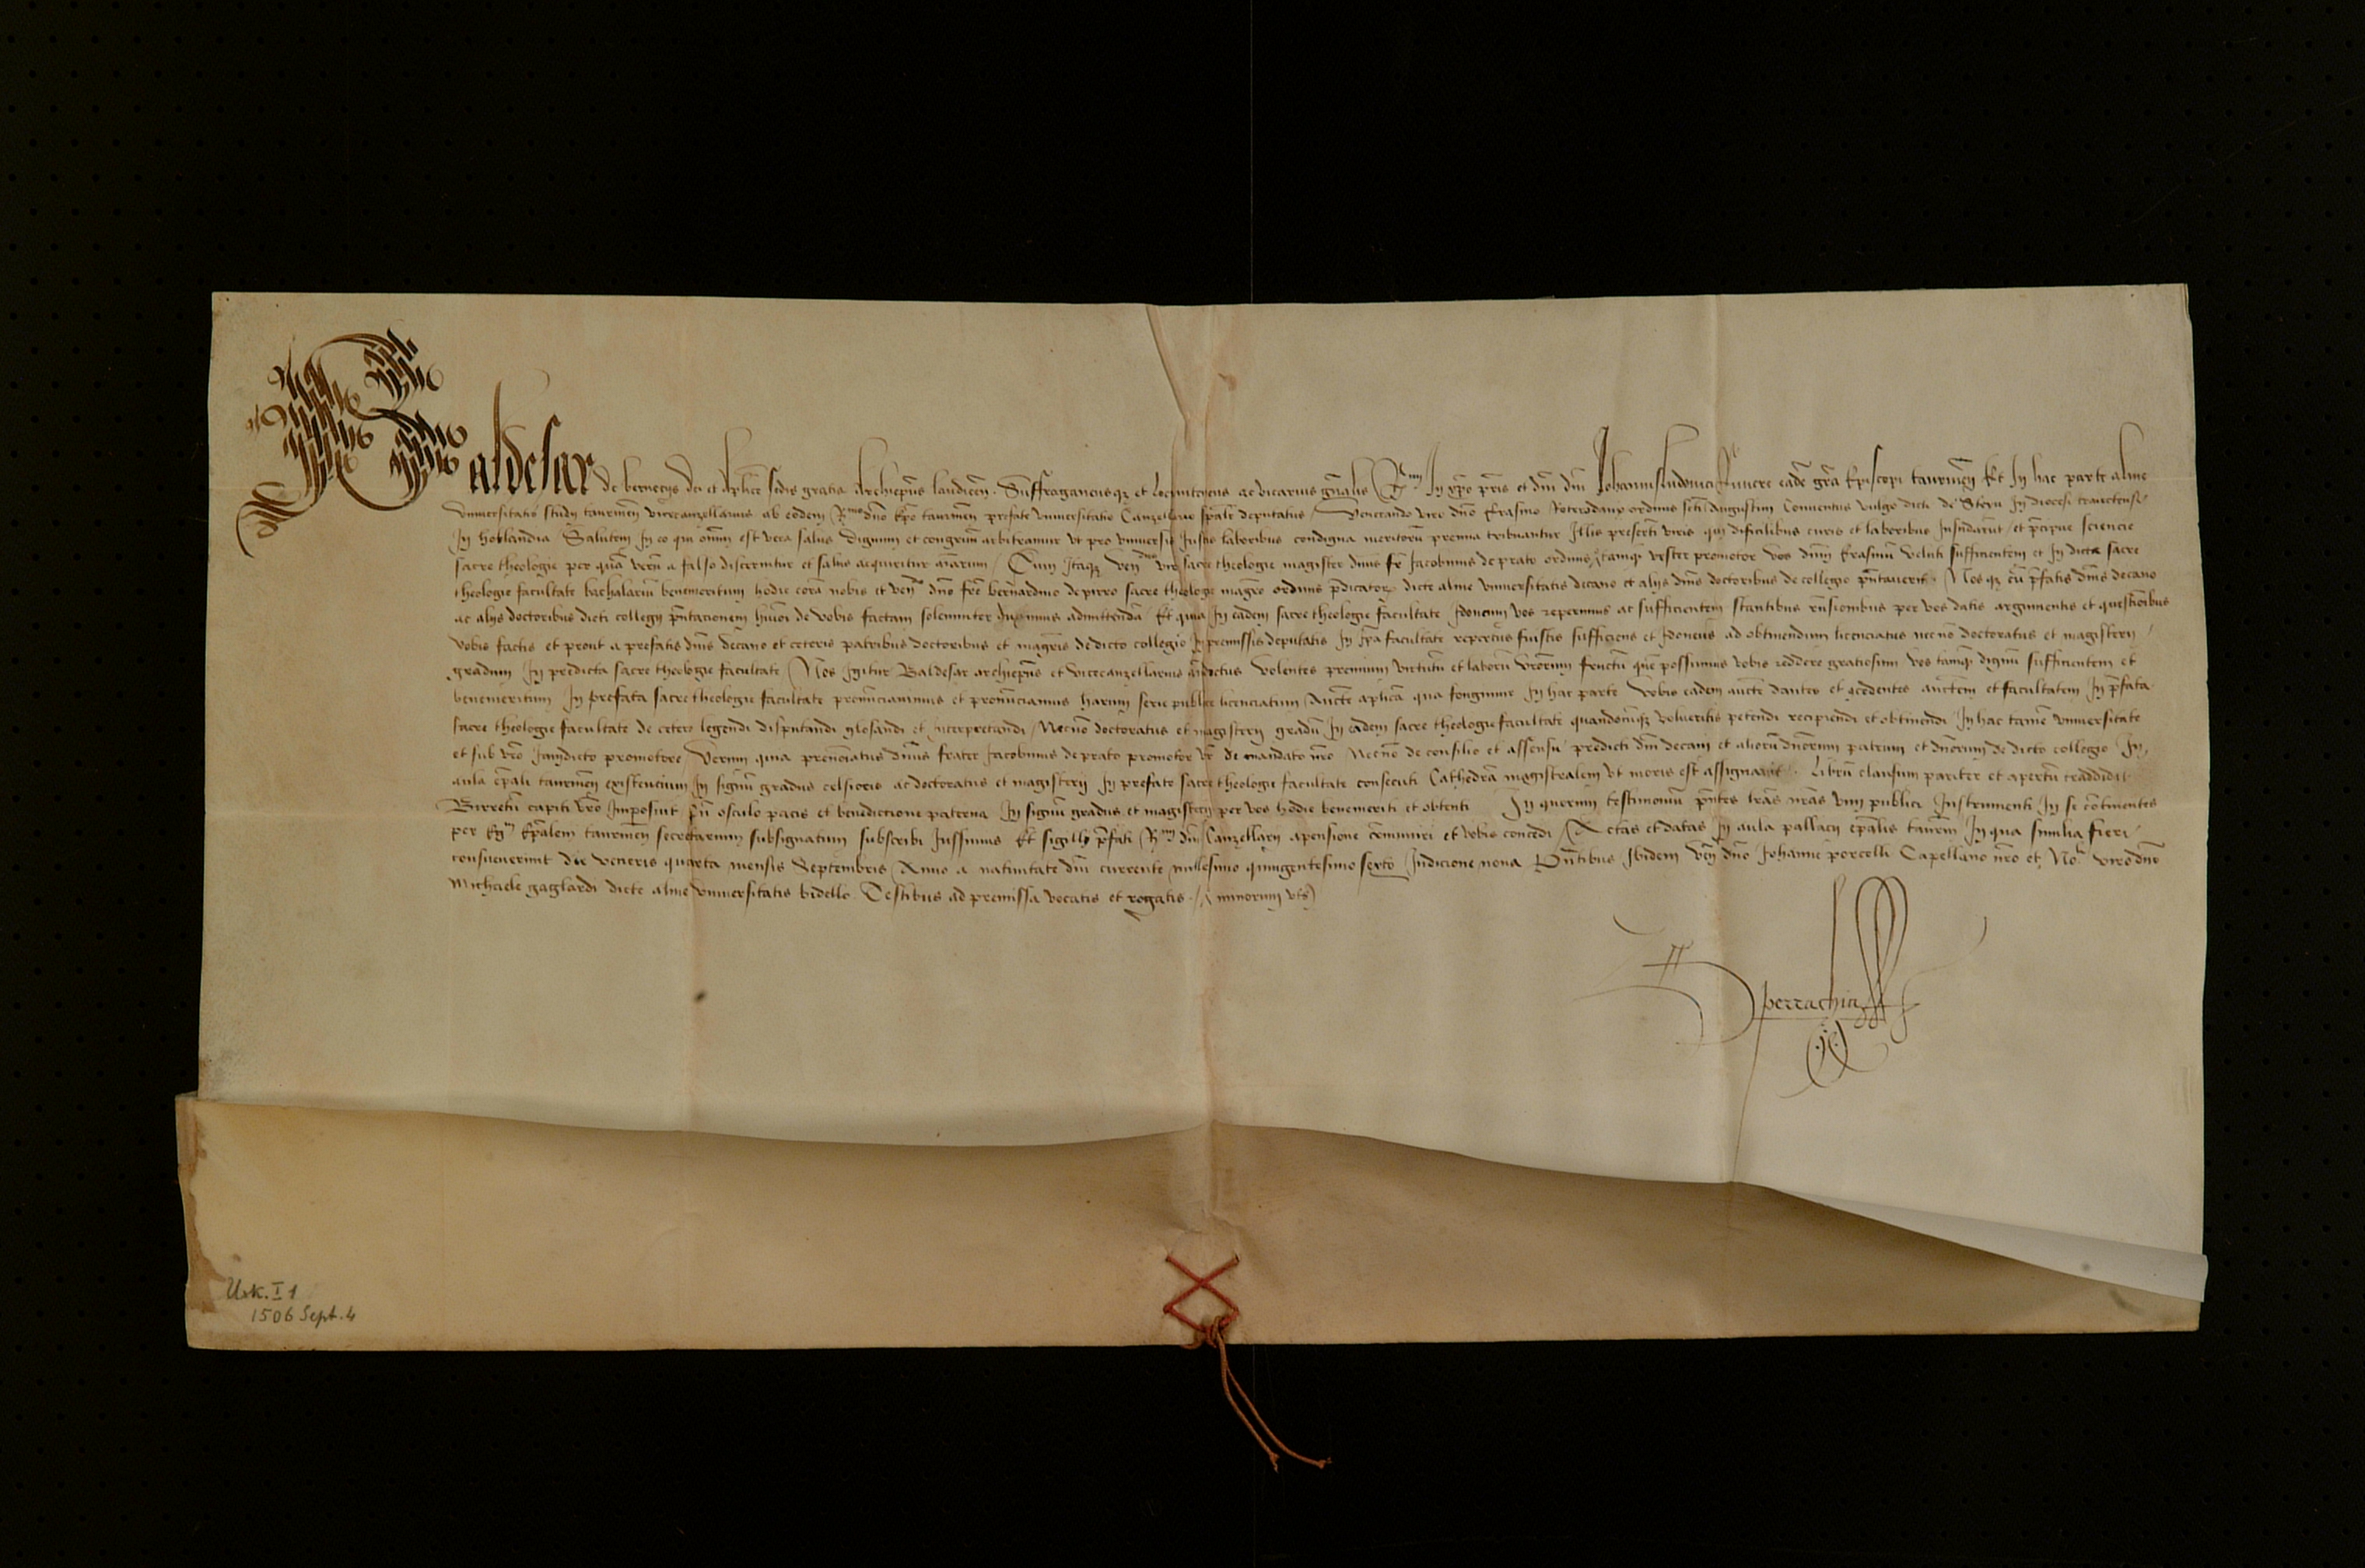 Baldesar de bernecijs dei et aplice sedis gratia Archiepus laudicen Suffraganeusqz et locumtenens ac vicarius gnalis Rmi In xpo pris et dni dni Johannisludouici Ruuere eade gra Epi​scopi taurinen Et In hac parte alme
vniuersitatis studij taurinen vicecanzellarius ab eodem Rmo dno Epo taurinen prefate vniuersitatis Canzellario spalr deputatus / Venerando viro dno Erasmo Roterodamo ordinis scti Augustini Conuentus vulgo dicti de Steyn In diocesi traiectensi
In hollandia Salutem In eo qui omni est vera salus Dignum et congruum arbitramur vt pro vniuersis Iustis laboribus condigna meritoru premia tribuantur Illis preserti viris qui dificilibus curis et laboribus Insudarut / et precipue sciencie
sacre theologie per qua veru a falso discernitur et salus acquiritur aiarum / Cum Itaqz vendus vir sacre theologie magister dnus fr Jacobinus de prato ordinis tamqz vester promotor vos dnm Erasmu veluti sufficientem et In dicta sacre
theologie facultate bachalariu benemeritum hodie cora nobis et veno dno fre bernardino de pirro sacre theologie magro ordinis pdicatorz dicte alme vniuersitatis decano et alijs dnis doctoribus de collegio pntauerit Nos qz cu pfatis dnis decano
ac alijs doctoribus dicti collegij pntacionem huioi de vobis factam solemniter duximus admittenda Et quia In eadem sacre theologie facultate Idoneum vos reperimus ac sufficientem stantibus rnsionibus per vos datis argumentis et questionibus
vobis factis et prout a prefatis dnis decano et ceteris patribus doctoribus et magris de dicto collegio In premissis deputatis In ipa facultate repertus fuistis sufficiens et Idoneus ad obtinendum licenciatus necno doctoratus et magisterij /
gradum In predicta sacre theologie facultate Nos Igitur Baldesar archiepus et vicecanzellarius andictus volentes premium virtutu et laboru vrorum fructu que possumus vobis reddere gratiosum vos tamqz dignu sufficientem et
benemeritum In prefata sacre theologie facultate pronunciauimus et pronunciamus harum serie publice licenciatum Aucte aplica qua fungimur In hac parte Vobis eadem aucte dantes et concedentes auctem et facultatem In pfata
sacre theologie facultate de cetero legendi disputandi glosandi et Interpretandi / Necno doctoratus et magisterij gradu In eadem sacre theologie facultate quandocuqz volueritis petendi recipiendi et obtinendi In hac tame vniuersitate
et sub vro Iamdicto promotore / Verum quia prenoiatus dnus frater Jacobinus de prato promotor vr de mandato nro Necno de consilio et assensu predicti dni decani et alioru dnorum patrum et dnorum de dicto collegio In
aula epali taurinen existencium In signu gradus celsioris ac doctoratus et magisterij In prefate sacre theologie facultate consecuti Cathedra magistralem vt moris est assignauit . Libru clausum pariter et apertu traddidit
Birretu capiti vro Imposuit Cu osculo pacis et benedictione paterna In signu gradus et magisterij per vos hodie benemeriti et obtenti In quorum testimoniu pntes lras nras vim publici Instrumenti In se continentes
per Epalem taurinen secretarium subsignatum subscribi Iussimus Et sigilli pfati Rmi dni Canzellarij apensione communiri et vobis concedi / Actas et datas In aula pallacij epalis taurini In qua similia fieri
consueuerunt die veneris quarta mensis Septembris Anno a natiuitate dni currente millesimo quingentesimo sexto Indicione nona Pntibus Ibidem ven dno Johanne porcelli Capellano nro et No viro dno
Michaele gaglardi dicte alme vniuersitatis bidello Testibus ad premissa vocatis et rogatis .
perrachia
Urk. I 1
1506 Sept. 4